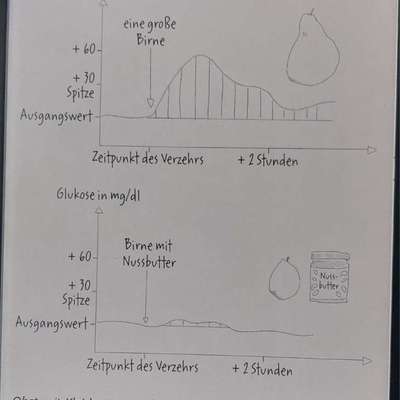 eine große
Birne
+ 60
+ 30
Spitze
Ausgangswert
Zeitpunkt des Verzehrs
+ 2 Stunden
Glukose in mg/dl
Birne mit
Nussbutter
+ 60
Nuss-
butter
+ 30
Spitze
Ausgangswert
Zeitpunkt des Verzehrs
+ 2 Stunden